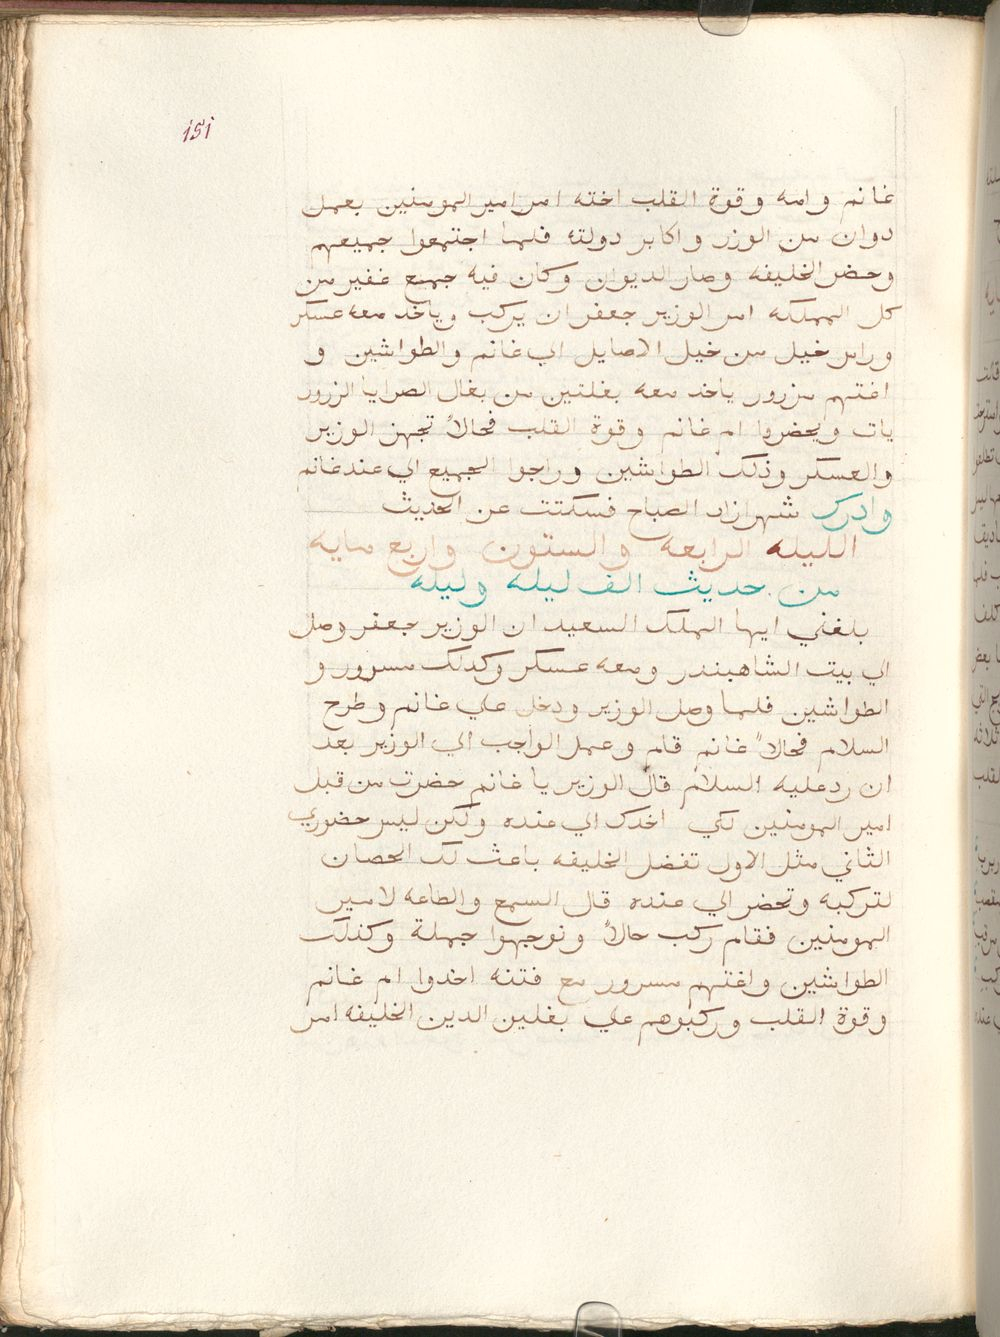 151
غانم وامه وقوة القلب اخته امر امير المومنين بعمل
دوان من الوزر واكابر دولته فلما اجتمعوا جميعهم
وحضر الخليفه وصار الديوان وكان فيه جميع غفير من
كل المملكه امر الوزير جعفر ان يركب وياخد معه عسكر
وراس خيل من خيل الاصايل الي غانم والطواشين و
اغتهم مزرور ياخد معه بغلتين من بغال الصرايا الزرور
يات ويحضروا ام غانم وقوة القلب فحالاً تجهز الوزير
والعسكر وذلك الطواشين وراجوا الجميع الي عند غانم
وادرك شهرازاد الصباح فسكتت عن الحديث
الليله الرابعه والستون واربع مايه
من حديث الف ليله وليله
بلغني ايها الملك السعيد ان الوزير جعفر وصل
الي بيت الشاهبندر ومعه عسكر وكدلك مسرور و
الطواشين فلما وصل الوزير ودخل علي غانم وطرح
السلام فحالاً غانم قام وعمل الواجب الي الوزير بعد
ان رد عليه السلام قال الوزير يا غانم حضرت من قبل
امير المومنين لكي اخدك الي عنده ولكن ليس حضوري
الثاني مثل الاول تفضل الخليفه باعث لك الحصان
لتركبه وتحضر الي عنده قال السمع والطاعه لامير
المومنين فقام ركب حالاً وتوجهوا جملة وكذلك
الطواشين واغتهم مسرور مع فتنه اخدوا ام غانم
وقوة القلب وركبوهم علي بغلين الدين الخليفه امر